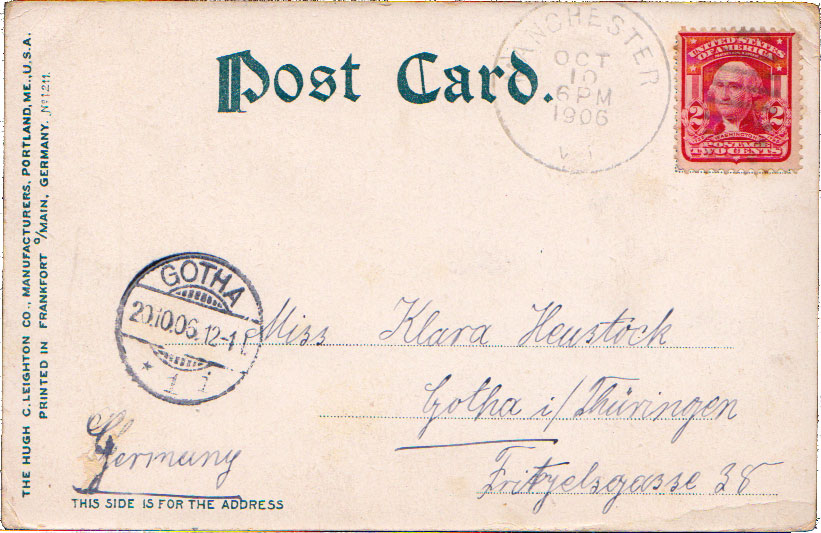 Post Card.
MANCHESTER
OCT
10
6 PM
1906
UNITED STATES
OF AMERICA
2 2
WASHINGTON
POSTAGE
TWO CENTS
THE HUGH C. LEIGHTON CO., MANUFACTURERS, PORTLAND, ME., U.S.A.
PRINTED IN FRANKFORT o/MAIN, GERMANY. No 1211.
GOTHA
20.10.06.12-1
* 1
Miss Klara Heustock
Gotha i/Thüringen
Germany
THIS SIDE IS FOR THE ADDRESS